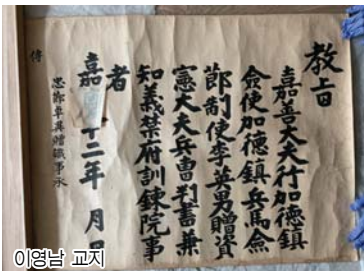 教旨
嘉善大夫行加德鎮
僉使加德鎮兵馬僉
節制使李英男贈資
憲大夫兵曺判書兼
知義禁府訓鍊院事
者
嘉 十二年 月 日
忠節卓異贈職事承
傳
이영남 교지